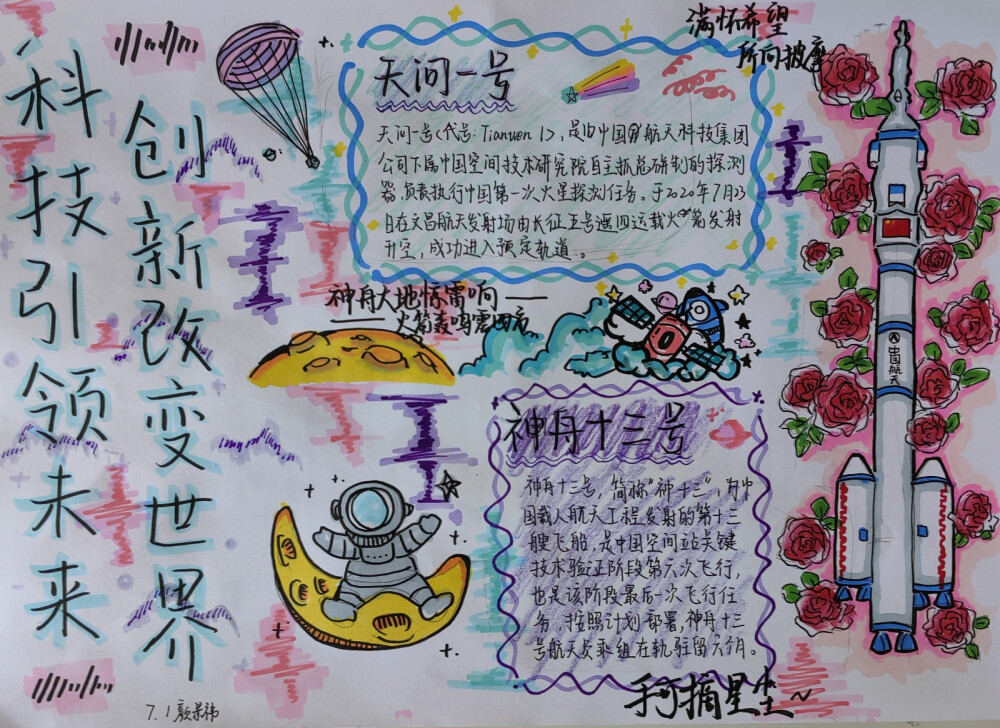 科技引领未来
创新改变世界
满怀希望
所向披靡
天问一号
天问一号<代号:Tianwen 1>,是由中国航天科技集团
公司下属中国空间技术研究院自主抓总研制的探测
器,负责执行中国第一次火星探测任务。于2020年7月23
日在文昌航天发射场由长征五号遥四运载火箭发射
升空,成功进入预定轨道。
神舟大地惊雷响——
——火箭轰鸣震四方
神舟十三号
神舟十三号,简称"神十三",为中
国载人航天工程发射的第十三
艘飞船,是中国空间站关键
技术验证阶段第六次飞行,
也是该阶段最后一次飞行任
务,按照计划部署,神舟十三
号航天员乘组在轨驻留六个月。
手可摘星尘~
中国航天
7.1颜景祎